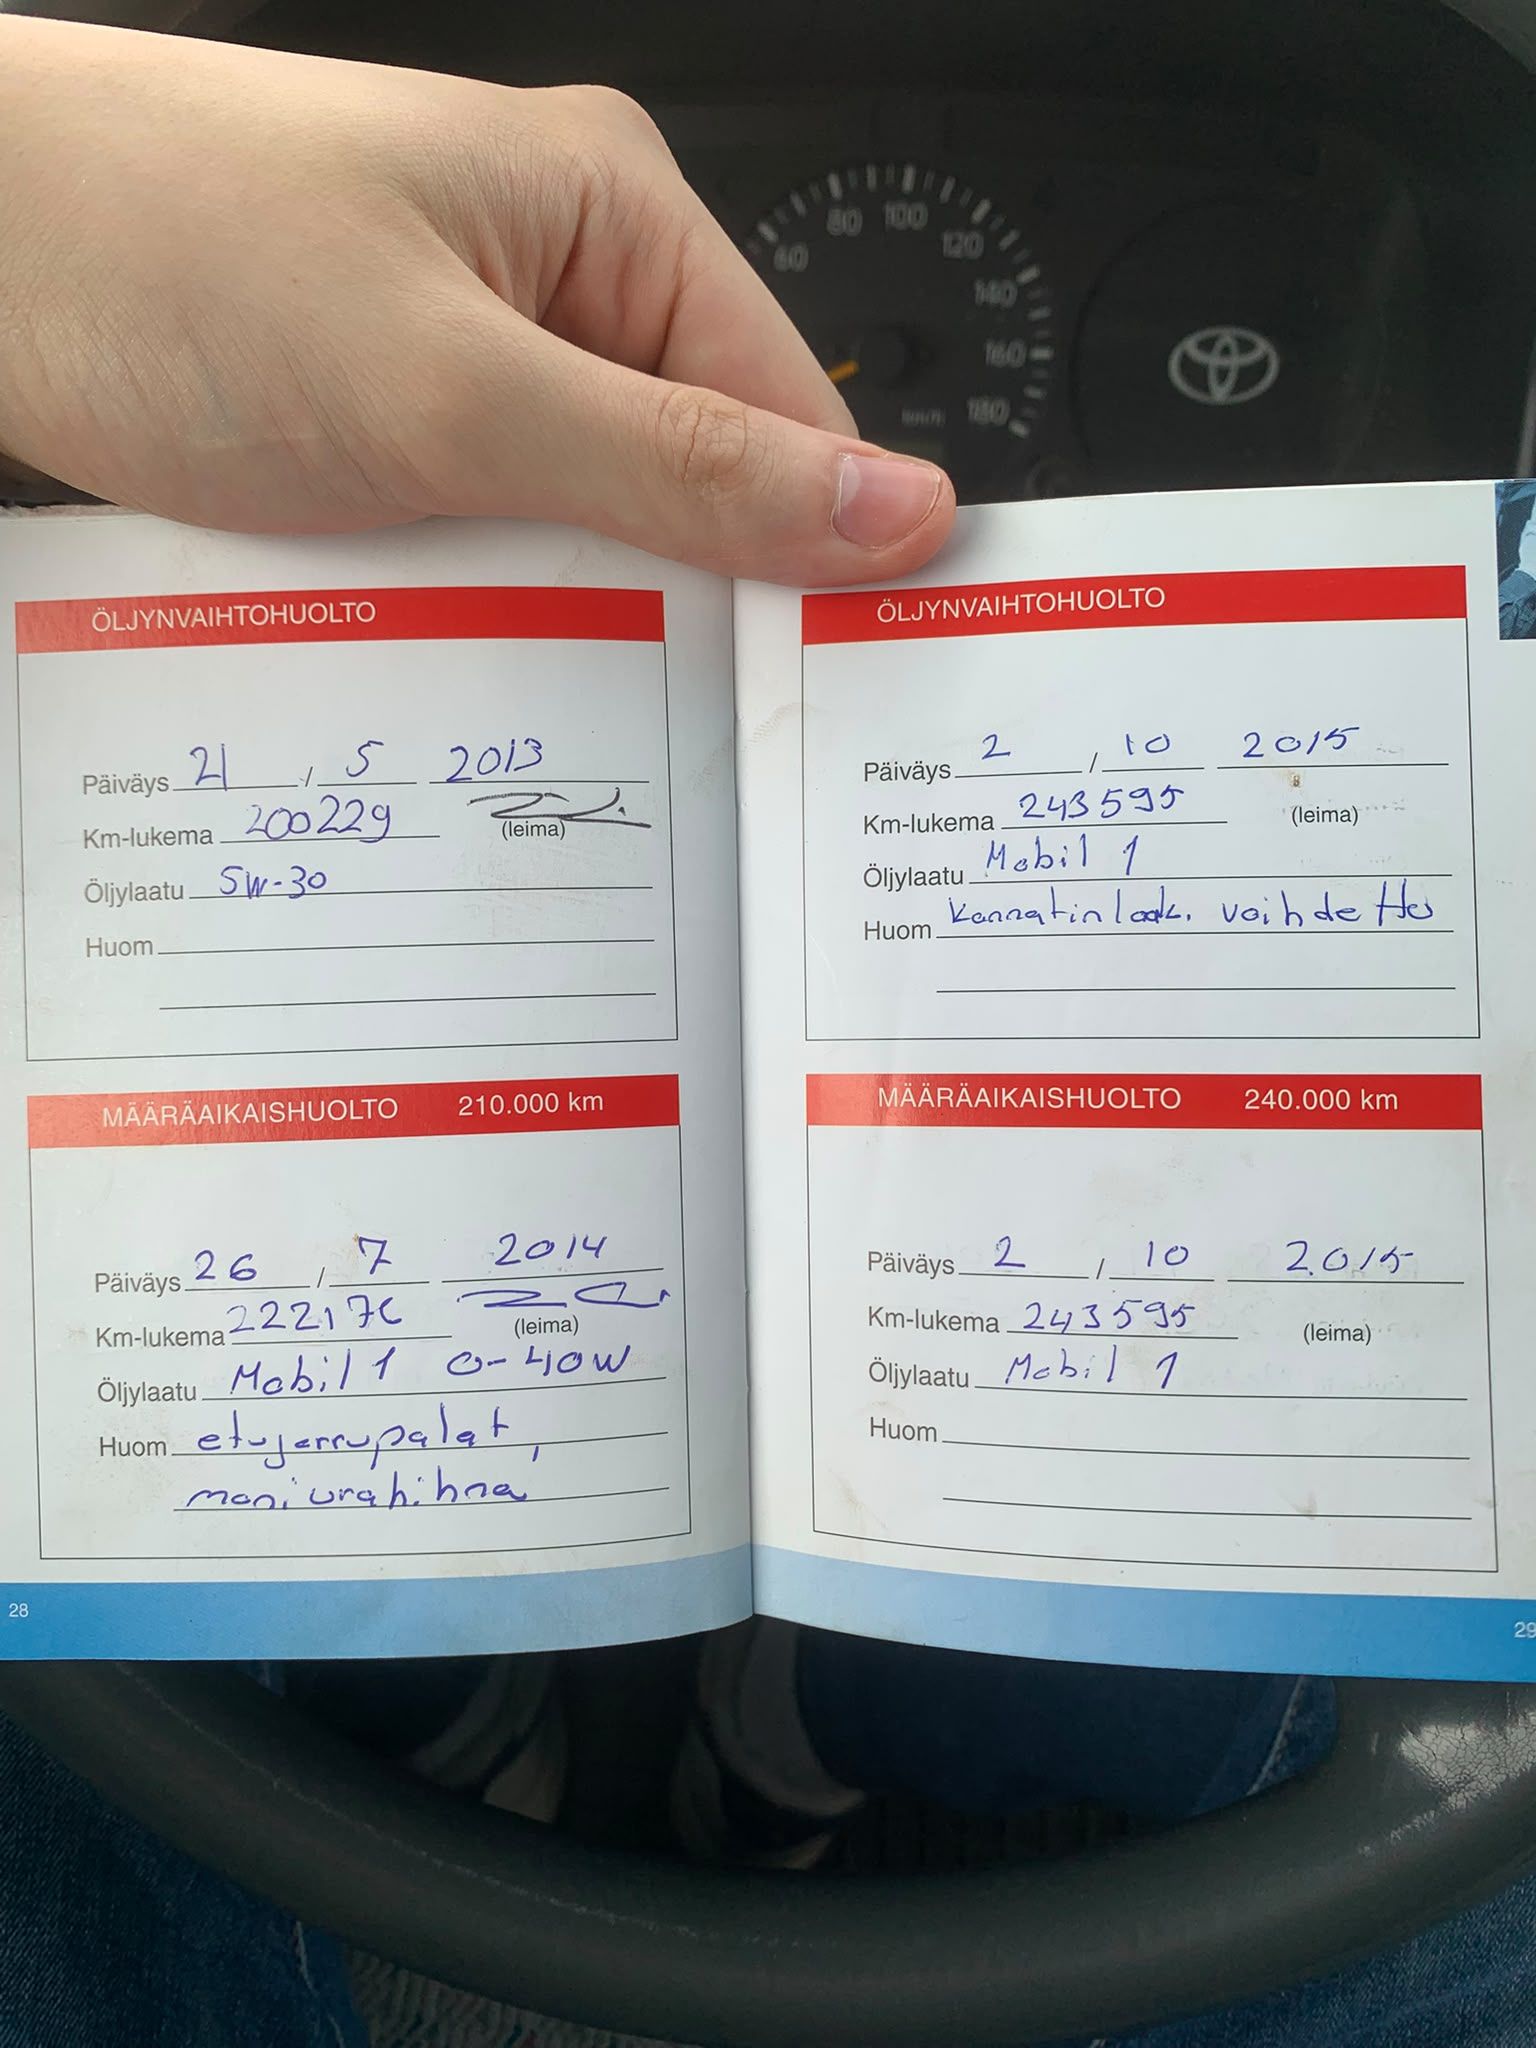 60 80 100 120 140 160 180
km/h
ÖLJYNVAIHTOHUOLTO
Päiväys 21 / 5 2013
Km-lukema 200229
(leima)
Öljylaatu 5W-30
Huom
MÄÄRÄAIKAISHUOLTO 210.000 km
Päiväys 26 / 7 2014
Km-lukema
(leima)
Öljylaatu Mobil 1 0-40W
Huom etujarrupalat,
moniurahihna
28
ÖLJYNVAIHTOHUOLTO
Päiväys 2 / 10 2015
Km-lukema 243595
(leima)
Öljylaatu Mobil 1
Huom kannatinlaak. vaihdettu
MÄÄRÄAIKAISHUOLTO 240.000 km
Päiväys 2 / 10 2015
Km-lukema 243595
(leima)
Öljylaatu Mobil 1
Huom
29